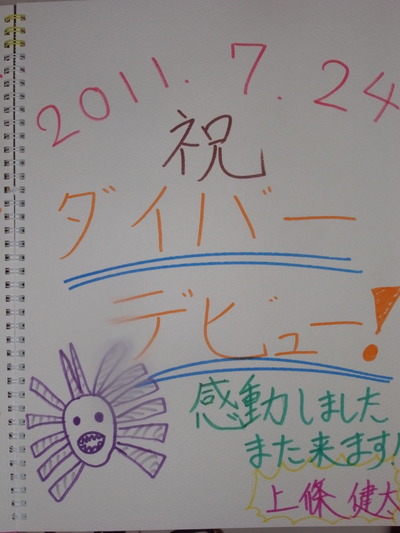 2011.7.24
祝
ダイバー
デビュー!
感動しました
また来ます!
上條 健太